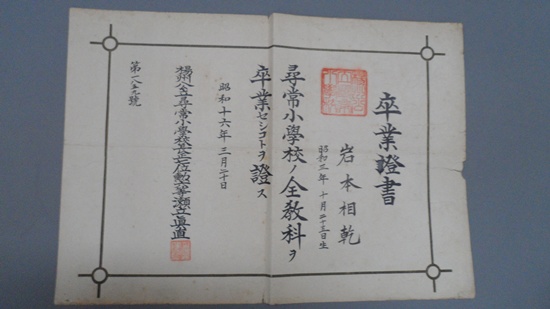 卒業證書
岩本相乾
昭和三年十月二十三日生
尋常小學校ノ全教科ヲ
卒業セシコトヲ證ス
昭和十六年三月二十日
楊州公立尋常小學校
第一八五九號